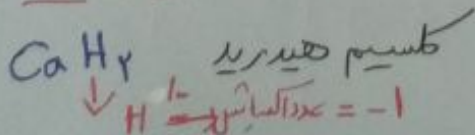 CaH۲ کلسیم هیدرید
↓ H¹⁻ → عدد اکسایش = -۱